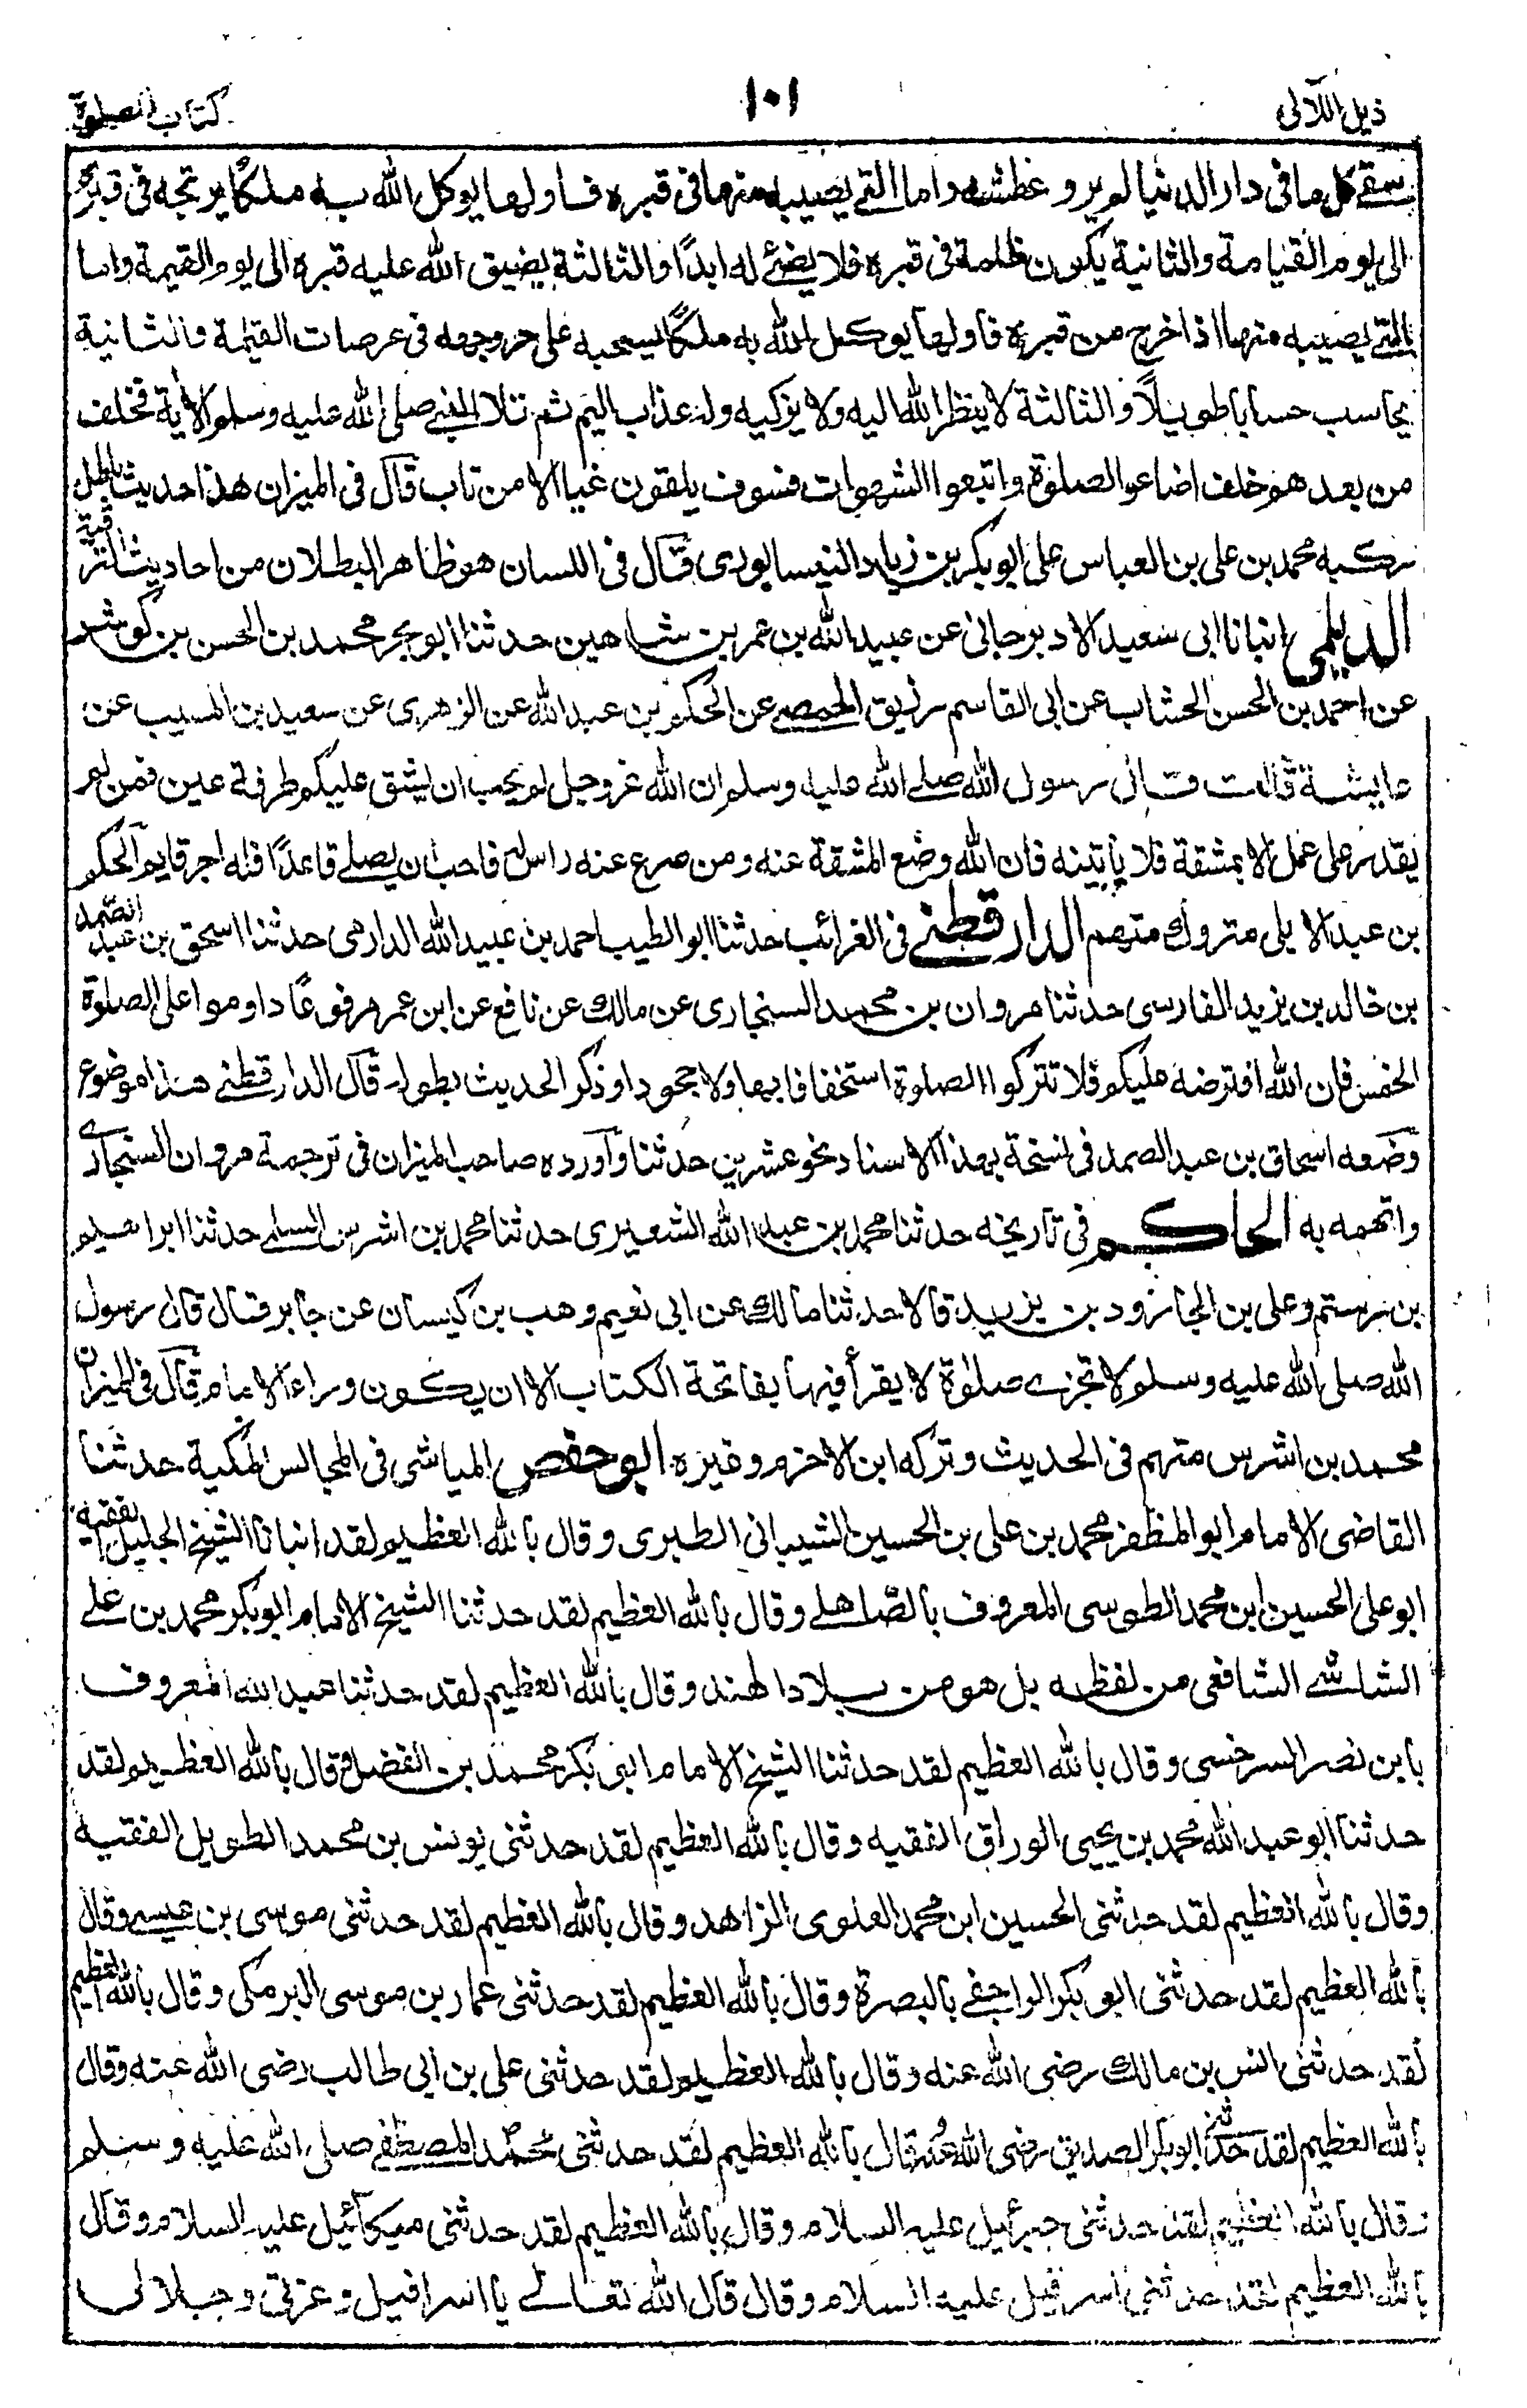 ذيل اللآلى
١٠١
كتاب الصلوة
سقے كل ما فى دار الدنيا لم يرو عطشه واما التے يصيبه منها فى قبره فاولها يوكل الله به ملكا يزعجه فى قبره
الى يوم القيامة والثانية يكون ظلمة فى قبره فلا يضئے له ابدًا والثالثة يضيق الله عليه قبره الى يوم القيمة واما
التے يصيبه منها اذا خرج من قبره فاولها يوكل الله به ملكًا يسحبه على حر وجهه فى عرصات القيمة والثانية
يحاسب حسابا طويلًا والثالثة لا ينظر الله اليه ولا يزكيه وله عذاب اليم ثم تلا النبے صلى الله عليه وسلم الأية فخلف
من بعدهم خلف اضاعوا الصلوة واتبعوا الشهوات فسوف يلقون غيا الا من تاب قال فى الميزان هذا حديث باطل
ركبه محمد بن على بن العباس على ابو بكر بن زياد النيسابورى قال فى اللسان هو ظاهر البطلان من احاديث الطرقية
الديلمى انبانا ابى سعيد الادبرجانى عن عبيد الله بن عمر بن شاهين حدثنا ابو بحر محمد بن الحسن بن كوثر
عن احمد بن الحسن الخشاب عن ابى القاسم رزيق الحمصے عن الحكم بن عبد الله عن الزهرى عن سعيد بن المسيب عن
عايشة قالت قال رسول الله صلے الله عليه وسلم ان الله عز وجل لم يحب ان يشق عليكم طرفة عين فمن لم
يقدر على عمل الا بمشقة فلا ياتينه فان الله وضع المشقة عنه ومن صرع عنه راسه فاحب ان يصلے قاعدًا فله اجر قايم الحكم
بن عبد الايلى متروك متهم الدارقطنے فى الغرائب حدثنا ابو الطيب احمد بن عبيد الله الدارمى حدثنا اسحق بن عبد الصمد
بن خالد بن يزيد الفارسى حدثنا مروان بن محمد السنجارى عن مالك عن نافع عن ابن عمر مرفوعًا داوموا على الصلوة
الخمس فان الله افترضه عليكم فلا تتركوا الصلوة استخفافا بها ولا جحودا وذكر الحديث بطوله قال الدارقطنے هذا موضوع
وضعه اسحاق بن عبد الصمد فى نسخة بهذا الاسناد نحو عشرين حدثنا وآورده صاحب الميزان فى ترجمة مروان السنجارے
واتهمه به الحاكم فى تاريخه حدثنا محمد بن عبد الله الشعيرى حدثنا محمد بن اشرس السلمے حدثنا ابراهيم
بن رستم وعلى بن الجارود بن يزيد قالا حدثنا مالك عن ابى نعيم وهب بن كيسان عن جابر قال قال رسول
الله صلى الله عليه وسلم لا تجزے صلوة لا يقرأ فيها بفاتحة الكتاب الا ان يكون وراء الامام قال فى الميزان
محمد بن اشرس متهم فى الحديث وتركه ابن الاخرم وغيره ابو حفص الميانشى فى المجالس المكية حدثنا
القاضى الامام ابو المظفر محمد بن على بن الحسين الشيبانى الطبرى وقال بالله العظيم لقد انبانا الشيخ الجليل الفقيه
ابو على الحسين ابن محمد الطوسى المعروف بالصاهلے وقال بالله العظيم لقد حدثنا الشيخ الامام ابو بكر محمد بن علے
الشاشے الشافعى من لفظه بل هو من بلاد الهند وقال بالله العظيم لقد حدثنا عبد الله المعروف
بابن نصر السرخسى وقال بالله العظيم لقد حدثنا الشيخ الامام ابى بكر محمد بن الفضل وقال بالله العظيم لقد
حدثنا ابو عبد الله محمد بن يحيى الوراق الفقيه وقال بالله العظيم لقد حدثنى يونس بن محمد الطويل الفقيه
وقال بالله العظيم لقد حدثنى الحسين ابن محمد العلوى الزاهد وقال بالله العظيم لقد حدثنى موسى بن عيسے وقال
بالله العظيم لقد حدثنى ابو بكر الواجفے بالبصرة وقال بالله العظيم لقد حدثنى عمار بن موسى البرمكى وقال بالله العظيم
لقد حدثنى انس بن مالك رضى الله عنه وقال بالله العظيم لقد حدثنى على بن ابى طالب رضى الله عنه وقال
بالله العظيم لقد حدثنى ابو بكر الصديق رضى الله عنه قال بالله العظيم لقد حدثنى محمد المصطفے صلى الله عليه وسلم
وقال بالله العظيم لقد حدثنى جبرأئيل عليه السلام وقال بالله العظيم لقد حدثنى ميكآئيل عليه السلام وقال
بالله العظيم لقد حدثنى اسرافيل عليه السلام وقال قال الله تعالے يا اسرافيل وعزتى وجلالى